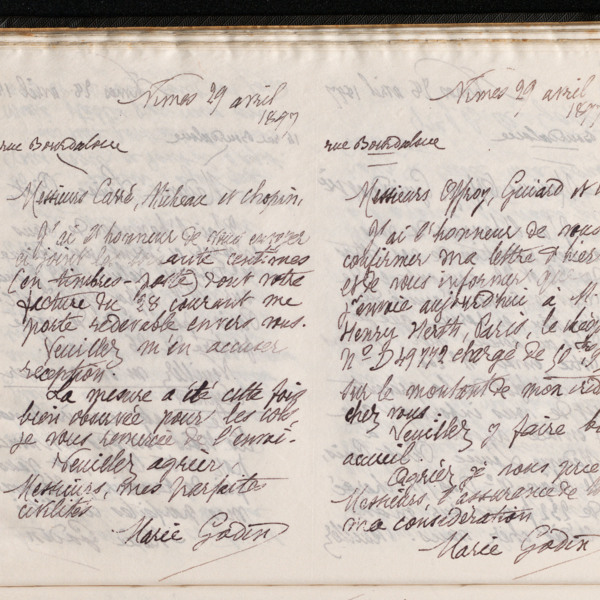 Nîmes 29 avril
1897
rue Bourdaloue
Messieurs Carré, Micheau et Chopin,
J'ai l'honneur de vous envoyer
ci joint le ante centimes
(en timbres-poste) dont votre
facture du 28 courant me
porte redevable envers vous.
Veuillez m'en accuser
réception.
La mesure a été cette fois
bien observée pour les cols,
je vous remercie de l'envoi.
Veuillez agréer
Messieurs, mes parfaites
civilités
Marie Godin
Nîmes 29 avril
1897
rue Bourdaloue
Messieurs Offroy, Guiard et
J'ai l'honneur de vous
confirmer ma lettre d'hier
et de vous informer
j'envoie aujourd'hui à M.
Henry Paris, le
N° D49772 chargé de
sur le montant de mon
chez vous.
Veuillez y faire
accueil.
Agréez je vous
Messieurs, l'assurance de
ma considération
Marie Godin